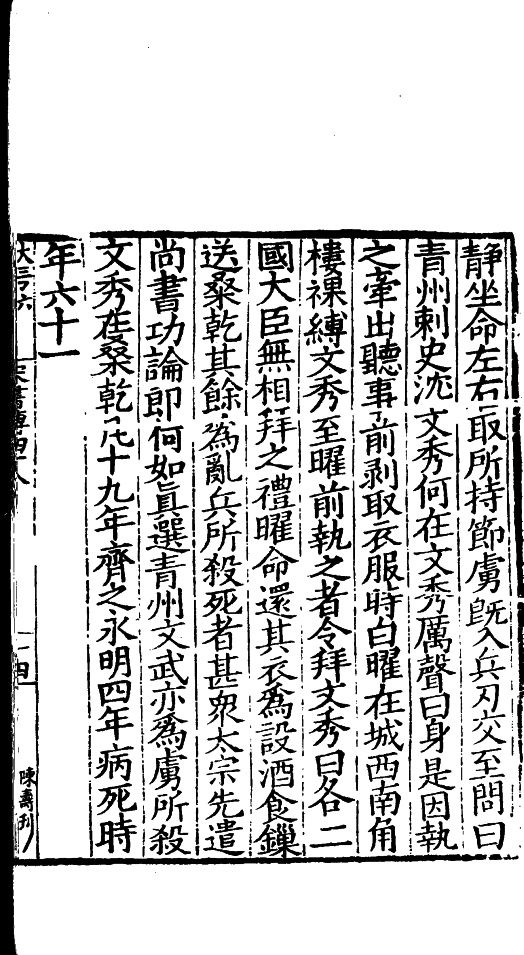 静坐命左右取所持節虜旣入兵刃交至問曰
青州刺史沈文秀何在文秀厲聲曰身是因執
之牽出聽事前剥取衣服時白曜在城西南角
樓裸縛文秀至曜前執之者令拜文秀曰各二
國大臣無相拜之禮曜命還其衣爲設酒食鏁
送桑乾其餘爲亂兵所殺死者甚衆太宗先遣
尚書功論郎何如真選青州文武亦爲虜所殺
文秀在桑乾凡十九年齊之永明四年病死時
年六十一
陳壽刊